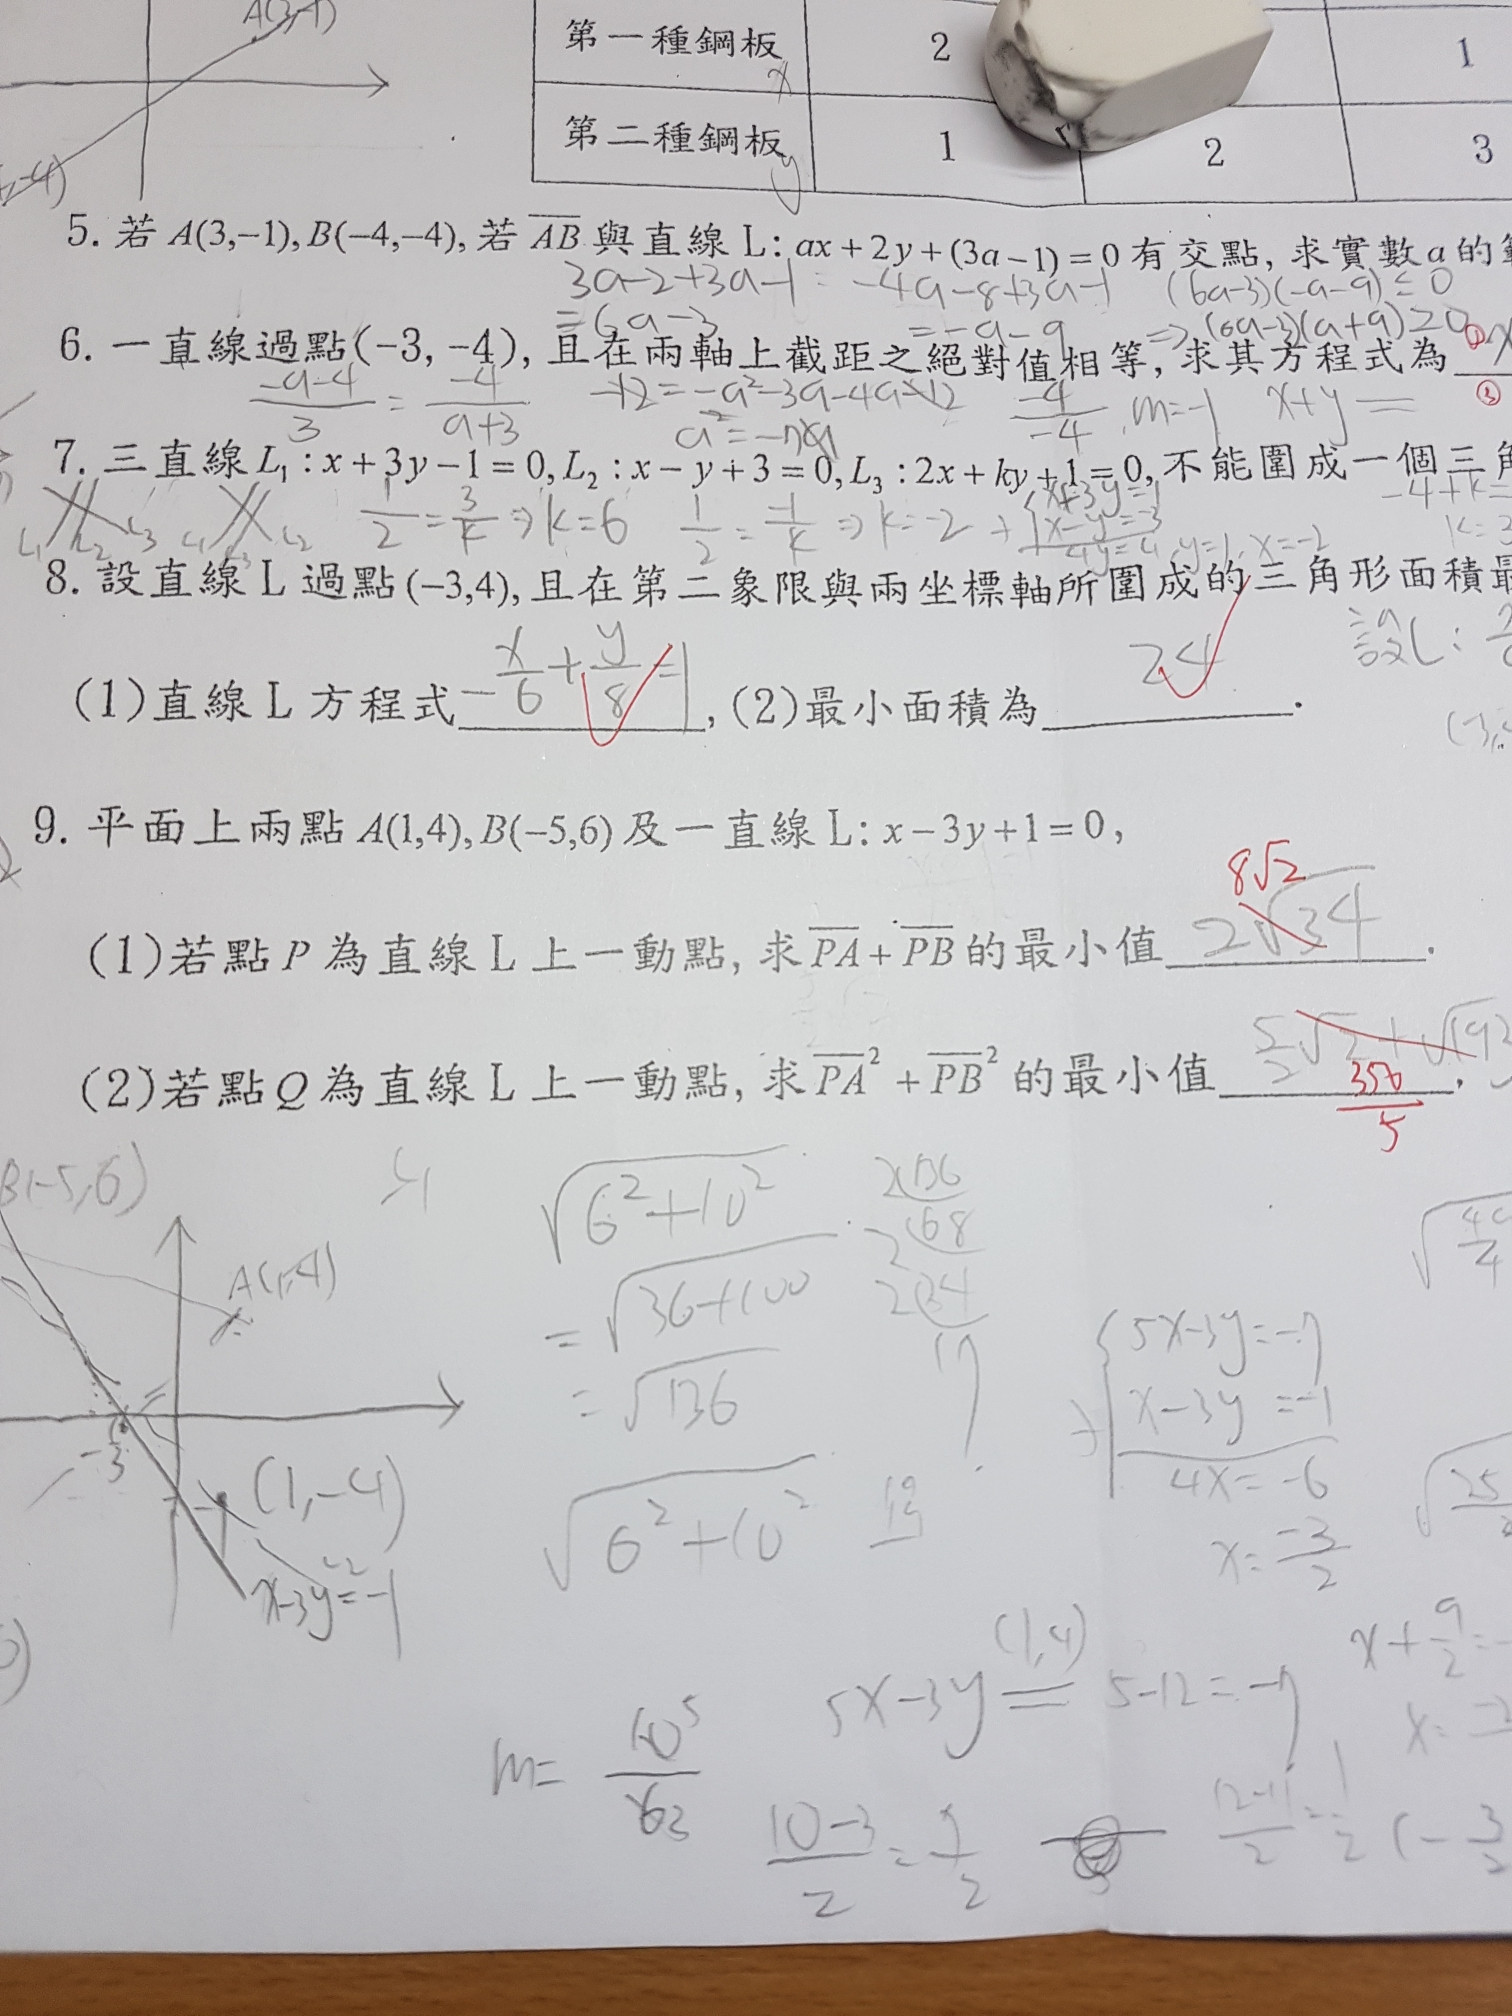 A(3,-1)
第一種鋼板 2 1
x
第二種鋼板 1 2 3
y
-4)
5. 若 A(3,−1), B(−4,−4), 若 AB 與直線 L: ax+2y+(3a−1)=0 有交點, 求實數 a 的
3a-2+3a-1 = -4a-8+3a-1 (6a-3)(-a-9)≤0
=6a-3 =-a-9 ⇒ (6a-3)(a+9)≥0
6. 一直線過點(−3, −4), 且在兩軸上截距之絕對值相等, 求其方程式為
-a-4/3 = -4/a+3 -12=-a²-3a-4a-12 -4/-4 , m=-1 x+y=
7. 三直線 L₁:x+3y−1=0, L₂:x−y+3=0, L₃:2x+ky+1=0, 不能圍成一個三角
L₁ L₂ L₃ 1/2 = 3/k ⇒ k=6 1/2 = -1/k ⇒ k=-2 + x+3y=1 -4+k=
x-y=-3
4y=4, y=1, x=-2
8. 設直線 L 過點(−3,4), 且在第二象限與兩坐標軸所圍成的三角形面積最
設L:
(1)直線 L 方程式 -x/6 + y/8 = 1 , (2)最小面積為 24 .
9. 平面上兩點 A(1,4), B(−5,6) 及一直線 L: x−3y+1=0,
8√2
(1)若點 P 為直線 L 上一動點, 求 PA+PB 的最小值 2√34 .
(2)若點 Q 為直線 L 上一動點, 求 PA²+PB² 的最小值 356/5 ,
B(-5,6)
A(1,4)
√6²+10²
2 136
2 68
2 34
17
=√36+100
=√136
5x-3y=-7
x-3y=-1
4x=-6
x=-3/2
-3
(1,-4)
√6²+10²
x-3y=-1
(1,4)
5x-3y = 5-12=-7
m= 10 5/6 3
10-3/2 = 7/2